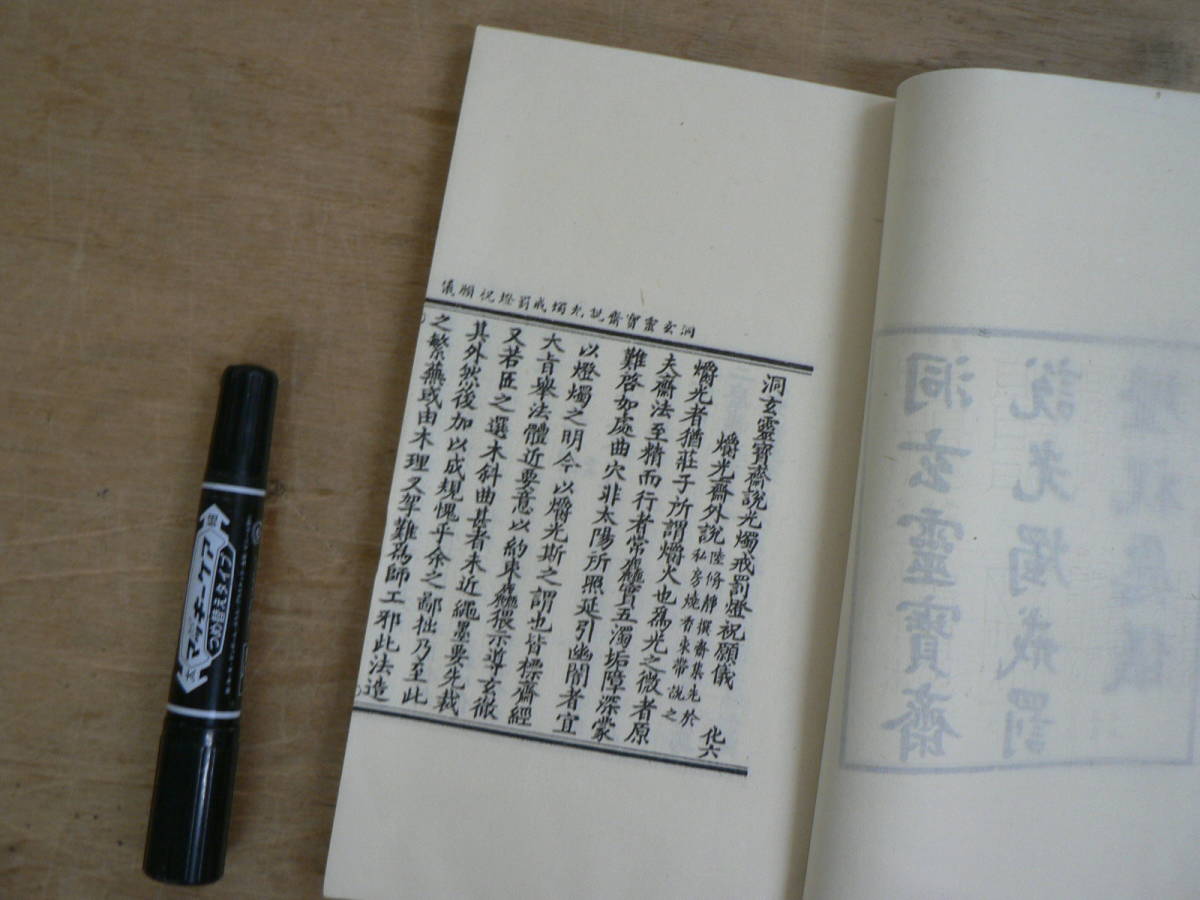 洞玄靈寶齋說光燭戒罰燈祝願儀
洞玄靈寶齋說光燭戒罰燈祝願儀 化六
爝光齋外說 陸脩靜撰齋集先於
私房燒香束帶說之
爝光者猶莊子所謂爝火也為光之微者原
夫齋法至精而行者常麤實五濁垢障深蒙
難啓如處曲穴非太陽所照延引幽闇者宜
以燈燭之明今以爝光斯之謂也皆標齋經
大旨舉法體近要意以約束麤猥示導玄徹
又若匠之選木斜曲甚者未近繩墨要先裁
其外然後加以成規愧乎余之鄙拙乃至此
之繁蕪或由木理又牢難為師工邪此法造
洞玄靈寶齋
說光燭戒罰
燈祝願儀
マッキーケア
つめ替えタイプ
細
太